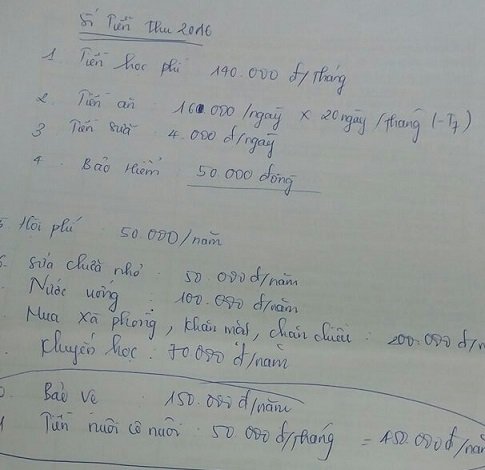 Số Tiền thu 2016
1. Tiền học phí 140.000 đ/tháng
2. Tiền ăn : 16.000/ngày x 20 ngày/tháng (-T7)
3 Tiền sữa : 4.000 đ/ngày
4. Bảo Hiểm 50.000 đồng
5. Hội phí : 50.000/năm
6. Sửa chữa nhỏ : 50.000đ/năm
Nước uống : 100.000 đ/năm
Mua xà phòng, khăn mặt, chăn chiếu : 200.000 đ/n
Khuyến học : 70000 đ/năm
0 Bảo vệ : 150.000đ/năm
1 Tiền nuôi cô nuôi : 50 000đ/tháng = 450.000đ/năm